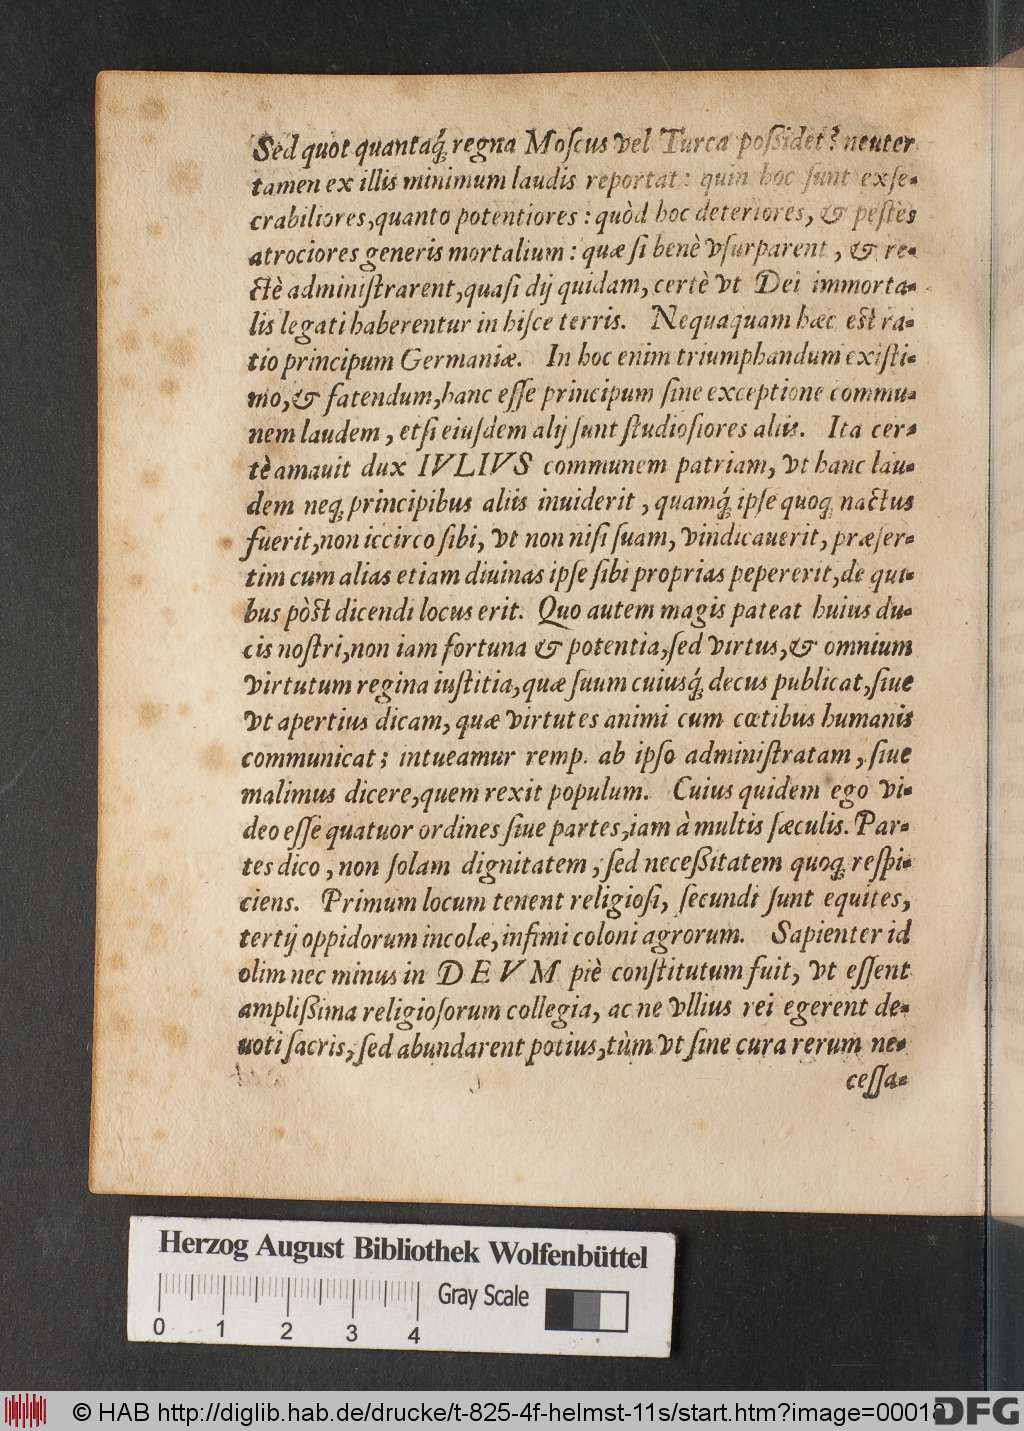 Sed quot quantaq́; regna Moſcus vel Turca poſsidet? neuter
tamen ex illis minimum laudis reportat: quin hoc ſunt exſe-
crabiliores, quanto potentiores: quòd hoc deteriores, & peſtes
atrociores generis mortalium: quæ ſi benè vſurparent, & re-
ctè adminiſtrarent, quaſi dij quidam, certè vt Dei immorta-
lis legati haberentur in hiſce terris. Nequaquam hæc eſt ra-
tio principum Germaniæ. In hoc enim triumphandum exiſti-
mo, & fatendum, hanc eſſe principum ſine exceptione commu-
nem laudem, etſi eiuſdem alij ſunt ſtudioſiores aliis. Ita cer-
tè amauit dux IVLIVS communem patriam, vt hanc lau-
dem neq; principibus aliis inuiderit, quamq́; ipſe quoq; nactus
fuerit, non iccirco ſibi, vt non niſi ſuam, vindicauerit, præſer-
tim cum alias etiam diuinas ipſe ſibi proprias pepererit, de qui-
bus pòſt dicendi locus erit. Quo autem magis pateat huius du-
cis noſtri, non iam fortuna & potentia, ſed virtus, & omnium
virtutum regina iuſtitia, quæ ſuum cuiusq́; decus publicat, ſiue
vt apertius dicam, quæ virtutes animi cum cœtibus humanis
communicat; intueamur remp. ab ipſo adminiſtratam, ſiue
malimus dicere, quem rexit populum. Cuius quidem ego vi-
deo eſſe quatuor ordines ſiue partes, iam à multis ſæculis. Par-
tes dico, non ſolam dignitatem, ſed neceßitatem quoq; reſpi-
ciens. Primum locum tenent religioſi, ſecundi ſunt equites,
tertij oppidorum incolæ, infimi coloni agrorum. Sapienter id
olim nec minus in DEVM piè conſtitutum fuit, vt eſſent
ampliſsima religioſorum collegia, ac ne vllius rei egerent de-
uoti ſacris, ſed abundarent potius, tùm vt ſine cura rerum ne-
ceſſa-
Herzog August Bibliothek Wolfenbüttel
0 1 2 3 4 Gray Scale
© HAB http://diglib.hab.de/drucke/t-825-4f-helmst-11s/start.htm?image=00018
DFG